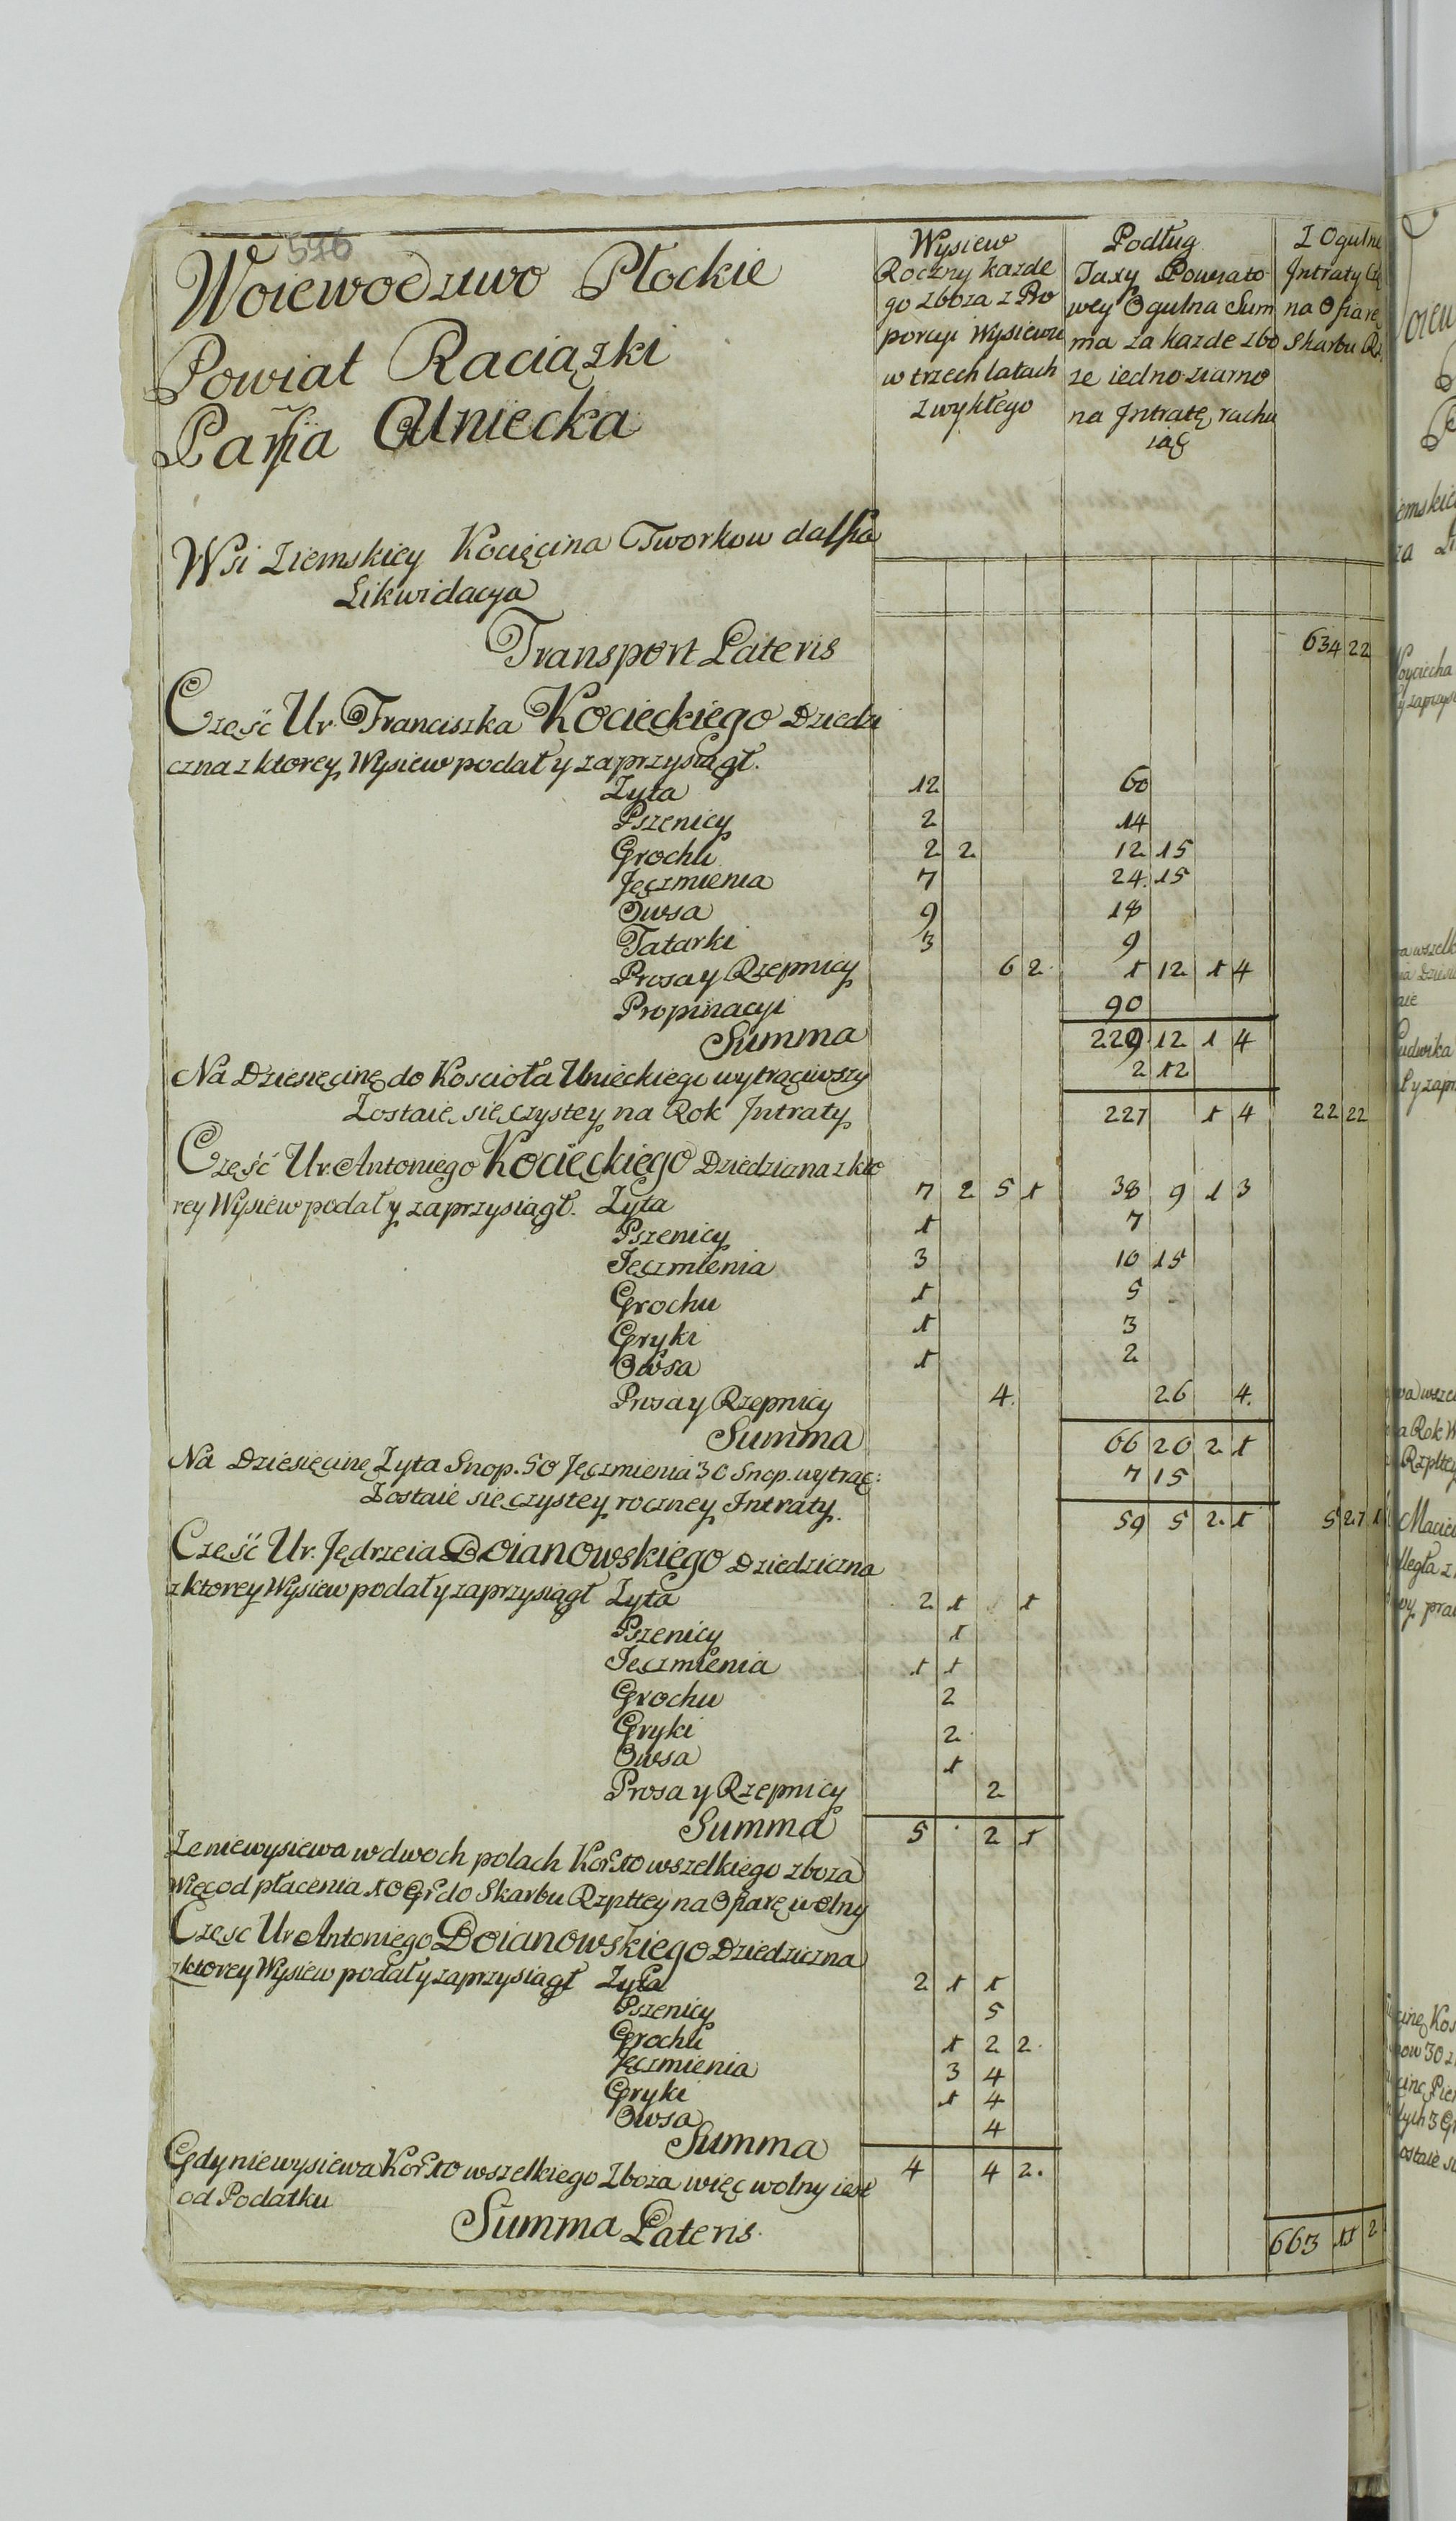 596
Woiewodztwo Płockie
Powiat Raciązki
Parfia Uniecka
Wysiew
Roczny kazde
go zboza z Pro
porcyi Wysiewu
w trzech latach
zwykłego
Podług
Taxy Powiato
wey Ogulna Sum
ma za kazde zbo
ze iedno ziarno
na Jntratę rachu
iąc
Z Ogulne
Jntraty
na Ofiarę
Skarbu Rz
Wsi Ziemskiey Kocięcina Tworkow dalsza
Likwidacya
Transport Lateris 634 22
Częsc Ur. Franciszka Kocieckiego Dziedzi
czna z ktorey Wysiew podał y zaprzysiągł.
Zyta 12 60
Pszenicy 2 14
Grochu 2 2 12 15
Jęczmienia 7 24. 15
Owsa 9 18
Tatarki 3 9
Prosa y Rzepnicy 6 2. 1 12 1 4
Propinacyi 90
Summa 229. 12 1 4
Na Dziesięcinę do Koscioła Unieckiego wytrąciwszy 2 12
Zostaie się czystey na Rok Jntraty 227 1 4 22 22
Częsć Ur. Antoniego Kocięckiego Dziedziczna z kto
rey Wysiew podał y zaprzysiągł. Zyta 7 2 5 1 38 9 1 3
Pszenicy 1 7
Jęczmienia 3 10 15
Grochu 1 5
Gryki 1 3
Owsa 1 2
Prosa y Rzepnicy 4. 26 4.
Summa 66 20 2 1
Na Dziesięcinę Zyta Snop. 50 Jęczmienia 30 Snop. wytrąc: 7 15
Zostaie się czystey roczney Jntraty. 59 5 2. 1 5 27 1
Częsć Ur. Jędrzeia Doianowskiego Dziedziczna
z ktorey Wysiew podał y zaprzysiągł Zyta 2 1 1
Pszenicy 1
Jęczmienia 1 1
Grochu 2
Gryki 2.
Owsa 1
Prosa y Rzepnicy 2
Summa 5 . 2 1
Ze niewysiewa w dwoch polach Kor. 10 wszelkiego zboza
więc od płacenia 10 Gr. do Skarbu Rzpttey na Ofiarę wolny
Częsc Ur Antoniego Doianowskiego Dziedziczna
z ktorey Wysiew podał y zaprzysiagł Zyta 2 1 1
Pszenicy 5
Grochu 1 2 2.
Jęczmienia 3 4
Gryki 1 4
Owsa 4
Summa 4 4 2.
Gdy niewysiewa Kor. 10 wszelkiego Zboza więc wolny iest
od Podatku
Summa Lateris. 663 11 2